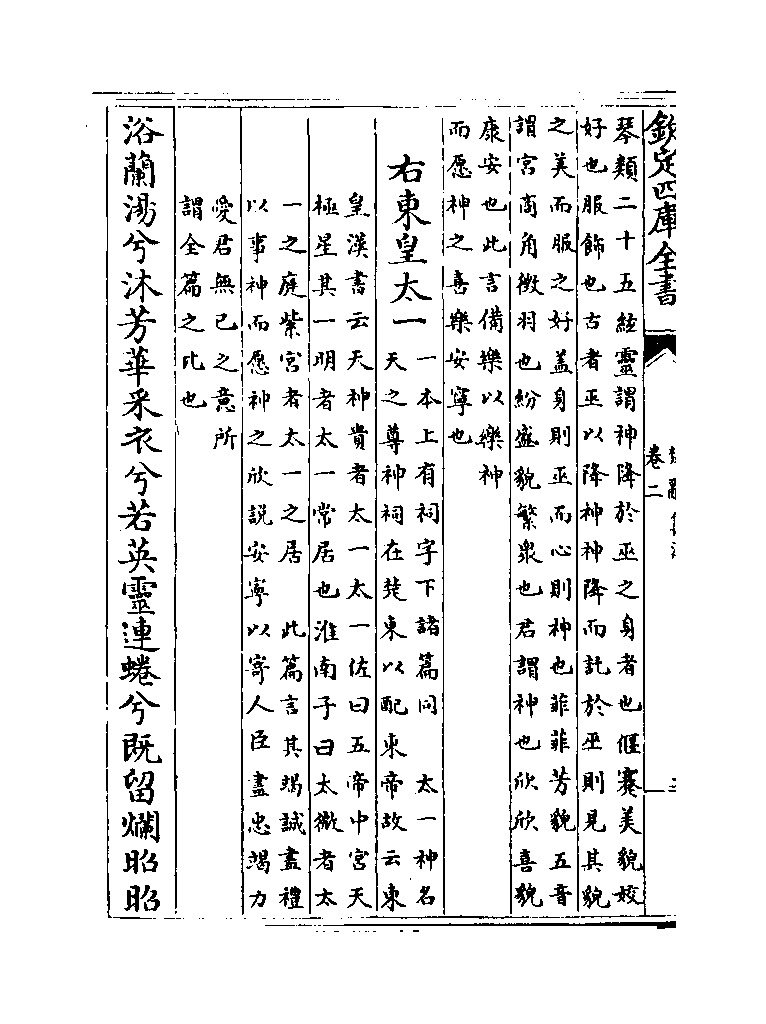 欽定四庫全書
卷二
琴類二十五絃靈謂神降於巫之身者也偃蹇美貌姣
好也服飾也古者巫以降神神降而託於巫則見其貌
之美而服之好蓋身則巫而心則神也菲菲芳貌五音
謂宮商角徵羽也紛盛貌繁衆也君謂神也欣欣喜貌
康安也此言備樂以樂神
而愿神之喜樂安寧也
右東皇太一
一本上有祠字下諸篇同 太一神名
天之尊神祠在楚東以配東帝故云東
皇漢書云天神貴者太一太一佐曰五帝中宮天
極星其一明者太一常居也淮南子曰太微者太
一之庭紫宮者太一之居 此篇言其竭誠盡禮
以事神而愿神之欣説安寧以寄人臣盡忠竭力
愛君無已之意所
謂全篇之比也
浴蘭湯兮沐芳華采衣兮若英靈連蜷兮既留爛昭昭